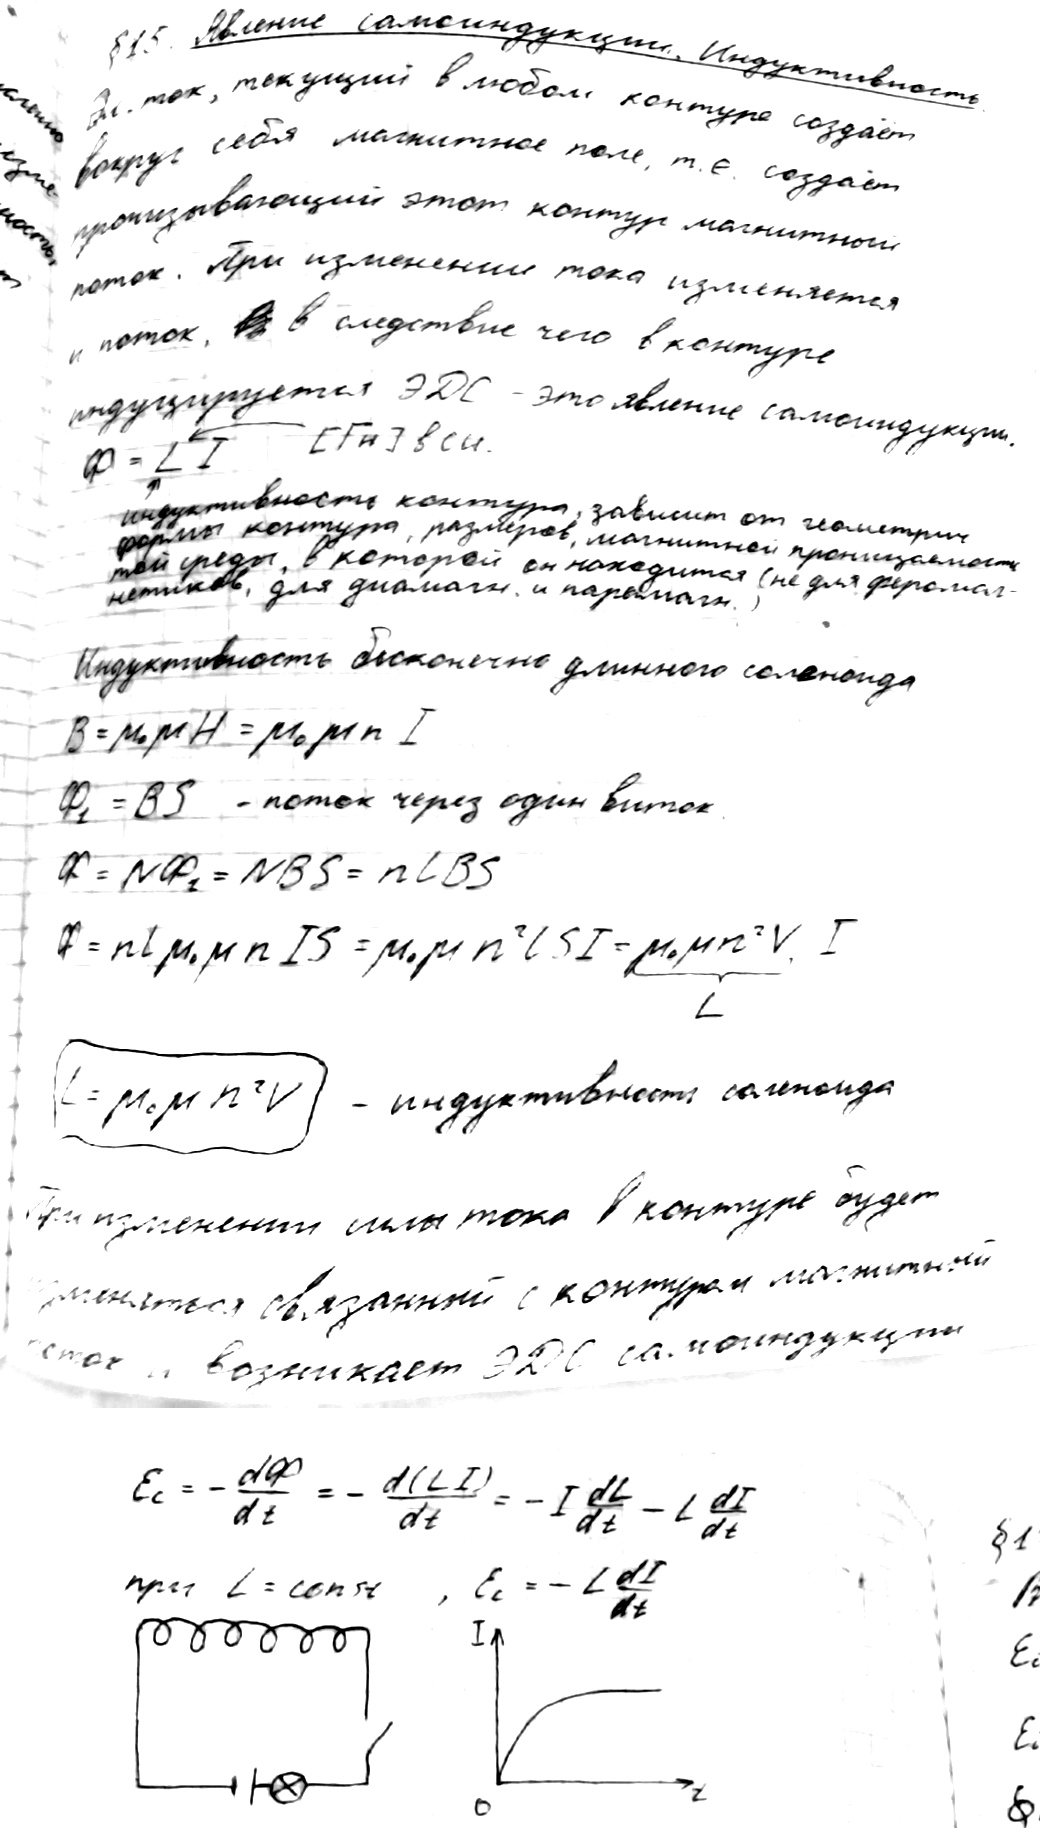 §15. Явление самоиндукции. Индуктивность.
Эл. ток, текущий в любом контуре создаёт
вокруг себя магнитное поле, т.е. создаёт
пронизывающий этот контур магнитный
поток. При изменении тока изменяется
и поток, в следствие чего в контуре
индуцируется ЭДС - это явление самоиндукции.
Ф = L I [Гн] в си.
индуктивность контура, зависит от геометрич
формы контура, размеров, магнитной проницаемость
той среды, в которой он находится (не для феромаг-
нетиков, для диамагн. и парамагн.)
Индуктивность бесконечно длинного соленоида
B = μ₀μH = μ₀μn I
Ф₁ = BS - поток через один виток
Ф = NФ₁ = NBS = nlBS
Ф = nlμ₀μnIS = μ₀μn²lSI = μ₀μn²V. I
L
L = μ₀μn²V - индуктивность соленоида
При изменении силы тока в контуре будет
изменяться связанный с контуром магнитный
поток и возникает ЭДС самоиндукции
Ɛc = - dФ/dt = - d(LI)/dt = - I dL/dt - L dI/dt
при L = const , Ɛc = - L dI/dt
I
0 t